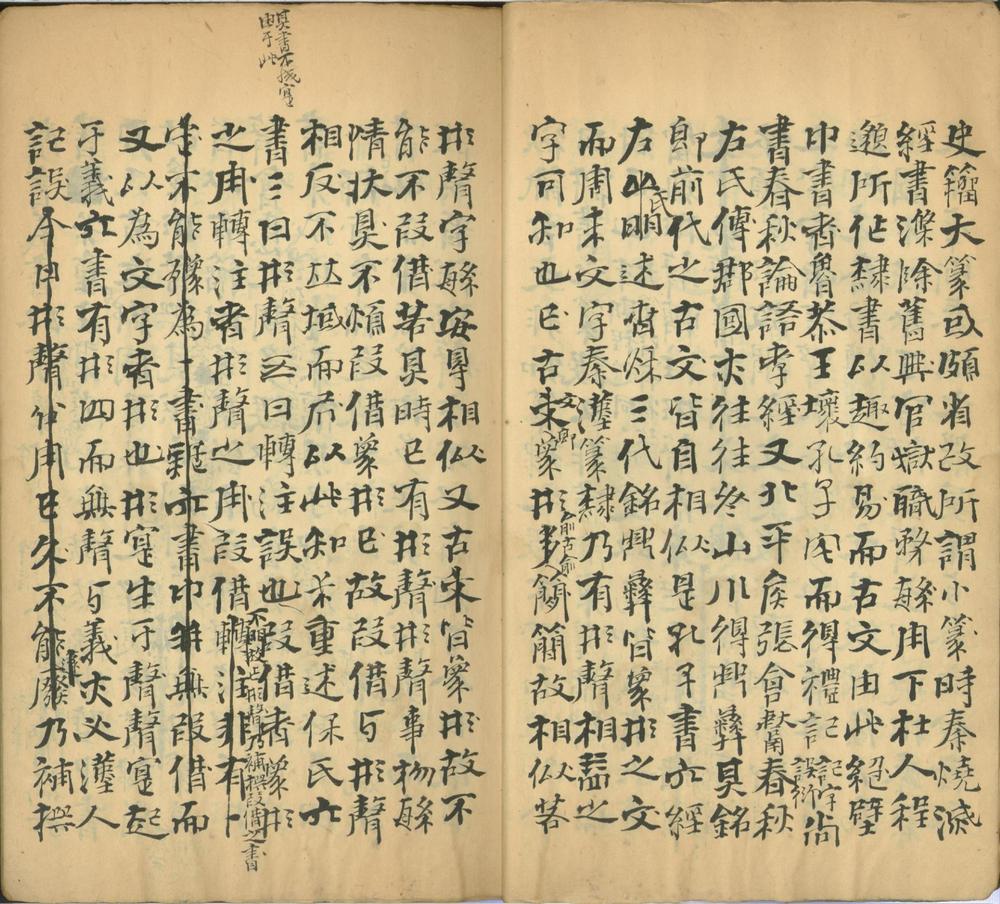 史籀大篆或頗省改所謂小篆時秦燒滅
經書滌除舊典官獄職務緐用下杜人程
邈所作隸書以趣約易而古文由此絕壁
中書者魯恭王壞孔子宅而得禮記記字誤衍尚
書春秋論語孝經又北平矦張會獻春秋
左氏傳郡國亦往往於山川得鼎彝其銘
即前代之古文皆自相似是孔子書六經
左氏明述春秋三代銘鼎彝皆象形之文
而周末文字秦漢篆隸乃有形聲相益之
字可知也已古文即象形簡故相似若
其書不成寔
由于此
形聲字緐安得相似又古來皆象形故不
能不叚借若其時已有形聲形聲事物緐
情狀具不煩叚借象形已故叚借与形聲
相反不竝域而居以此知重述保氏六
書三曰形聲五曰轉注誤也叚借者象形
不明故止明聲乃補撰叚借之書
之用轉注者形聲之用叚借轉注非有一
定不能彊為一書雖六書中并無叚借而
又以為文字者形也形寔生于聲聲寔起
于義六書有形四而無聲与義亦必漢人
記誤今日形聲用已久不能廢乃補撰